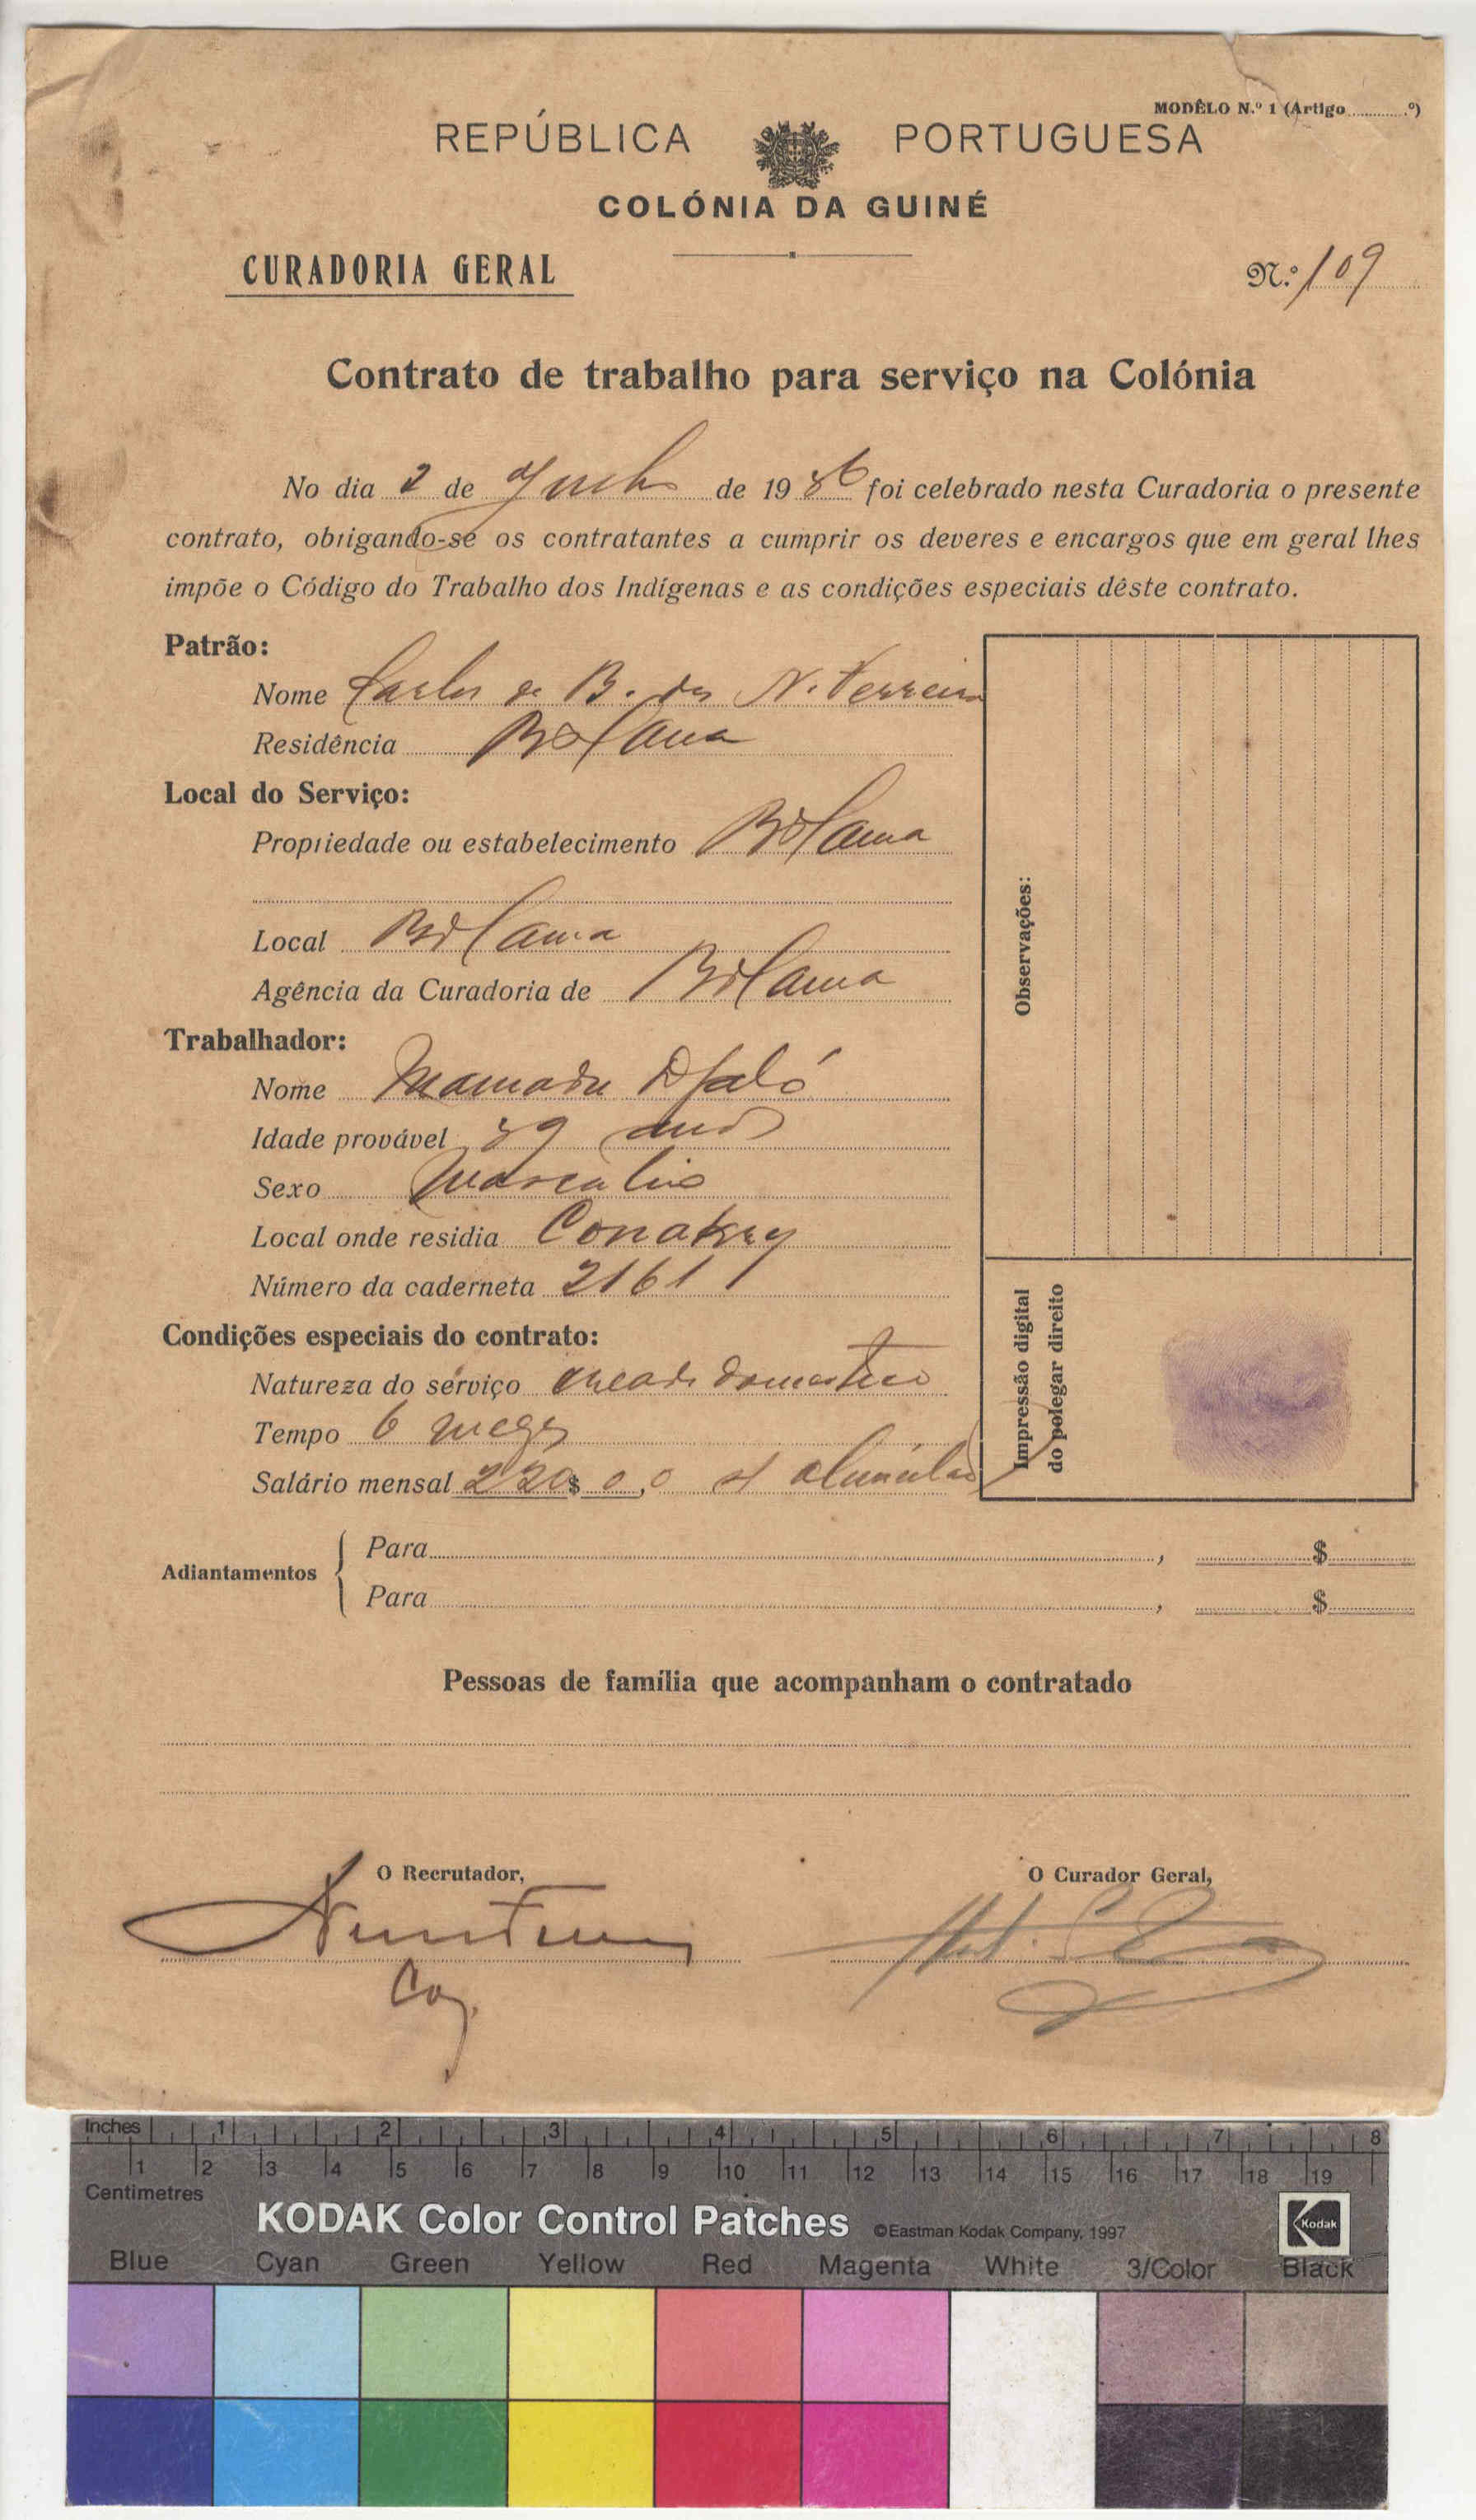 MODÊLO N.º 1 (Artigo ............º)
REPÚBLICA PORTUGUESA
COLÓNIA DA GUINÉ
CURADORIA GERAL
N.º 109
Contrato de trabalho para serviço na Colónia
No dia 2 de de 1936 foi celebrado nesta Curadoria o presente
contrato, obrigando-se os contratantes a cumprir os deveres e encargos que em geral lhes
impõe o Código do Trabalho dos Indígenas e as condições especiais dêste contrato.
Patrão:
Nome Carlos de B. das N. Ferreira
Residência Bolama
Local do Serviço:
Propriedade ou estabelecimento Bolama
Local Bolama
Agência da Curadoria de Bolama
Trabalhador:
Nome Mamadu Djaló
Idade provável 39 anos
Sexo Masculino
Local onde residia Conakry
Número da caderneta 2161
Condições especiais do contrato:
Natureza do serviço creado domestico
Tempo 6 mezes
Salário mensal 220$00
Observações:
Impressão digital
do polegar direito
Adiantamentos
Para ............, ............$............
Para ............, ............$............
Pessoas de família que acompanham o contratado
O Recrutador,
O Curador Geral,
Inches 1 2 3 4 5 6 7 8
1 2 3 4 5 6 7 8 9 10 11 12 13 14 15 16 17 18 19
Centimetres
KODAK Color Control Patches ©Eastman Kodak Company, 1997 Kodak
Blue Cyan Green Yellow Red Magenta White 3/Color Black